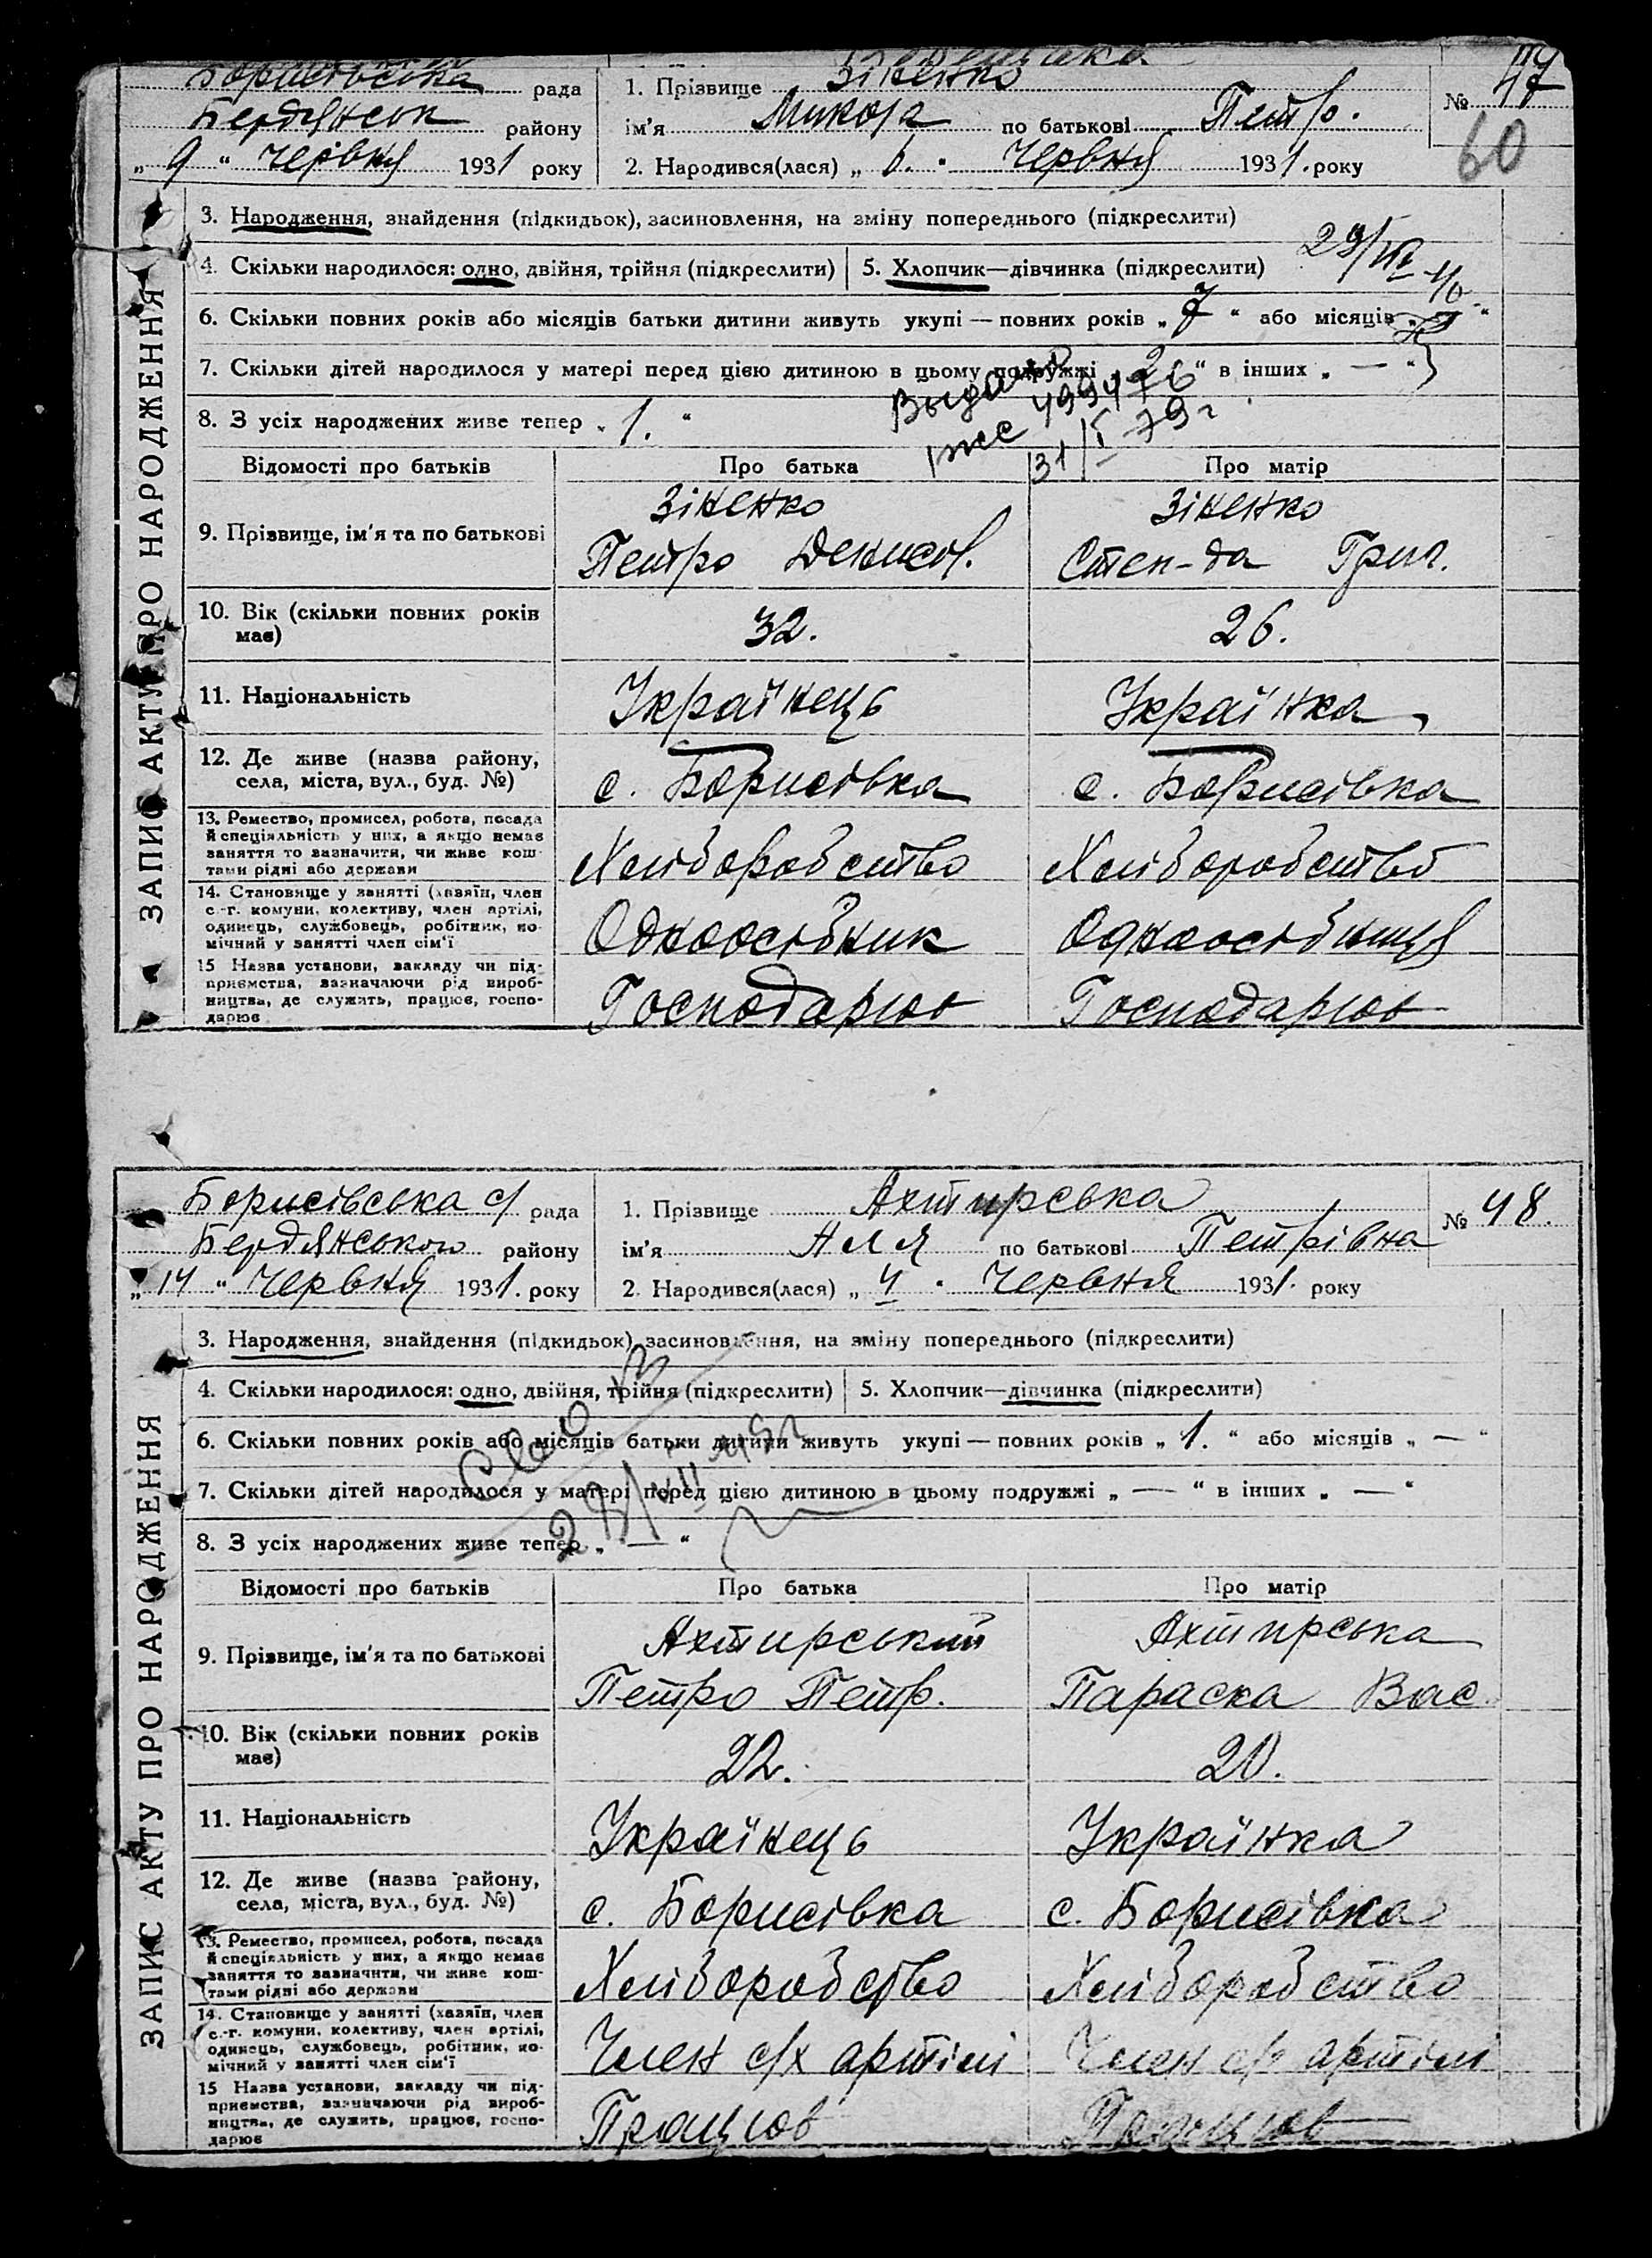 Борисівська рада
Бердянськ району
„ 9 “ Червня 1931 року
1. Прізвище Зіненко
ім’я Микола по батькові Петр.
2. Народився(лася) „ 6. “ Червня 1931. року
№ 47
60
ЗАПИС АКТУ ПРО НАРОДЖЕННЯ
3. Народження, знайдення (підкидьок), засиновлення, на зміну попереднього (підкреслити)
4. Скільки народилося: одно, двійня, трійня (підкреслити) 5. Хлопчик—дівчинка (підкреслити)
6. Скільки повних років або місяців батьки дитини живуть укупі — повних років „ 7 “ або місяців „ “
7. Скільки дітей народилося у матері перед цією дитиною в цьому подружжі „ 2 “ в інших „ — “
8. З усіх народжених живе тепер „ 1. “
31/I 79 г.
Відомості про батьків Про батька Про матір
9. Прізвище, ім’я та по батькові
Зіненко Зіненко
Петро Денисов. Степ-да Григ.
10. Вік (скільки повних років має) 32. 26.
11. Національність Українець Українка
12. Де живе (назва району, села, міста, вул., буд. №) с. Борисівка с. Борисівка
13. Ремество, промисел, робота, посада
й спеціяльність у них, а якщо немає
заняття то зазначити, чи живе кош-
тами рідні або держави
Хліборобство Хліборобство
14. Становище у занятті (хазяїн, член
с.-г. комуни, колективу, член артілі,
одинець, службовець, робітник, по-
мічний у занятті член сім’ї
Одноосібник Одноосібниця
15 Назва установи, закладу чи під-
приємства, зазначаючи рід вироб-
ництва, де служить, працює, госпо-
дарює
Господарює Господарює
Борисівська с/ рада
Бердянського району
„ 14 “ Червня 1931. року
1. Прізвище Ахтирська
ім’я Аля по батькові Петрівна
2. Народився(лася) „ 4 “ Червня 1931. року
№ 48.
ЗАПИС АКТУ ПРО НАРОДЖЕННЯ
3. Народження, знайдення (підкидьок), засиновлення, на зміну попереднього (підкреслити)
4. Скільки народилося: одно, двійня, трійня (підкреслити) 5. Хлопчик—дівчинка (підкреслити)
6. Скільки повних років або місяців батьки дитини живуть укупі — повних років „ 1. “ або місяців „ — “
7. Скільки дітей народилося у матері перед цією дитиною в цьому подружжі „ — “ в інших „ — “
8. З усіх народжених живе тепер „ — “
Відомості про батьків Про батька Про матір
9. Прізвище, ім’я та по батькові
Ахтирський Ахтирська
Петро Петр. Параска Вас.
10. Вік (скільки повних років має) 22. 20.
11. Національність Українець Українка
12. Де живе (назва району, села, міста, вул., буд. №) с. Борисівка с. Борисівка
13. Ремество, промисел, робота, посада
й спеціяльність у них, а якщо немає
заняття то зазначити, чи живе кош-
тами рідні або держави
Хліборобство Хліборобство
14. Становище у занятті (хазяїн, член
с.-г. комуни, колективу, член артілі,
одинець, службовець, робітник, по-
мічний у занятті член сім’ї
Член с/х артілі Член с/г артілі
15 Назва установи, закладу чи під-
приємства, зазначаючи рід вироб-
ництва, де служить, працює, госпо-
дарює
Працює Працює